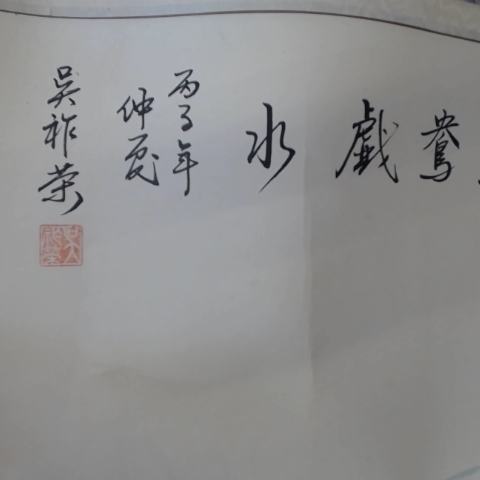 鴦戲水
丙子年
仲夏
吳祚榮